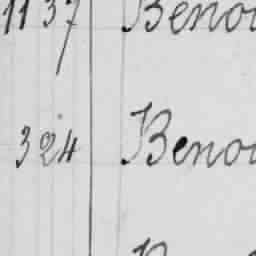 1137 Benoi
324 Benoi